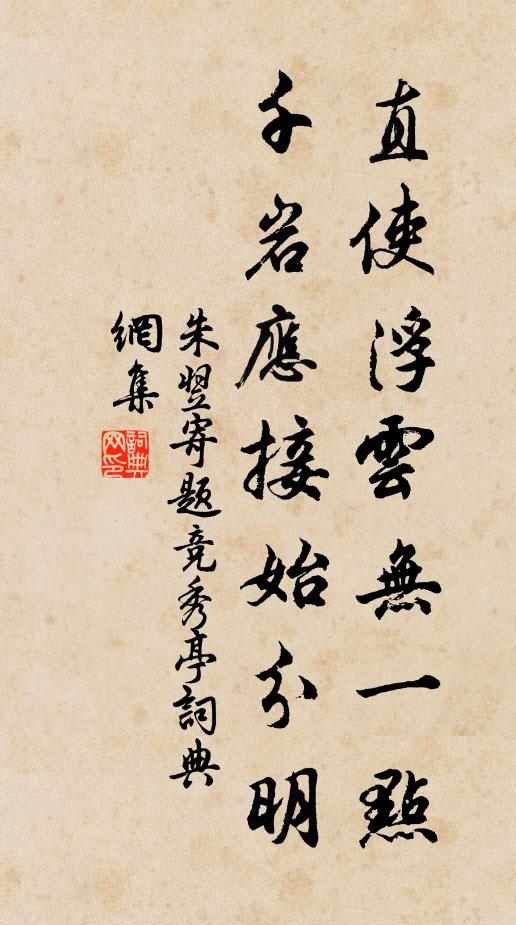 直使浮雲無一點
千岩應接始分明
朱翌寄題竞秀亭詞典
網集
詞典
网印